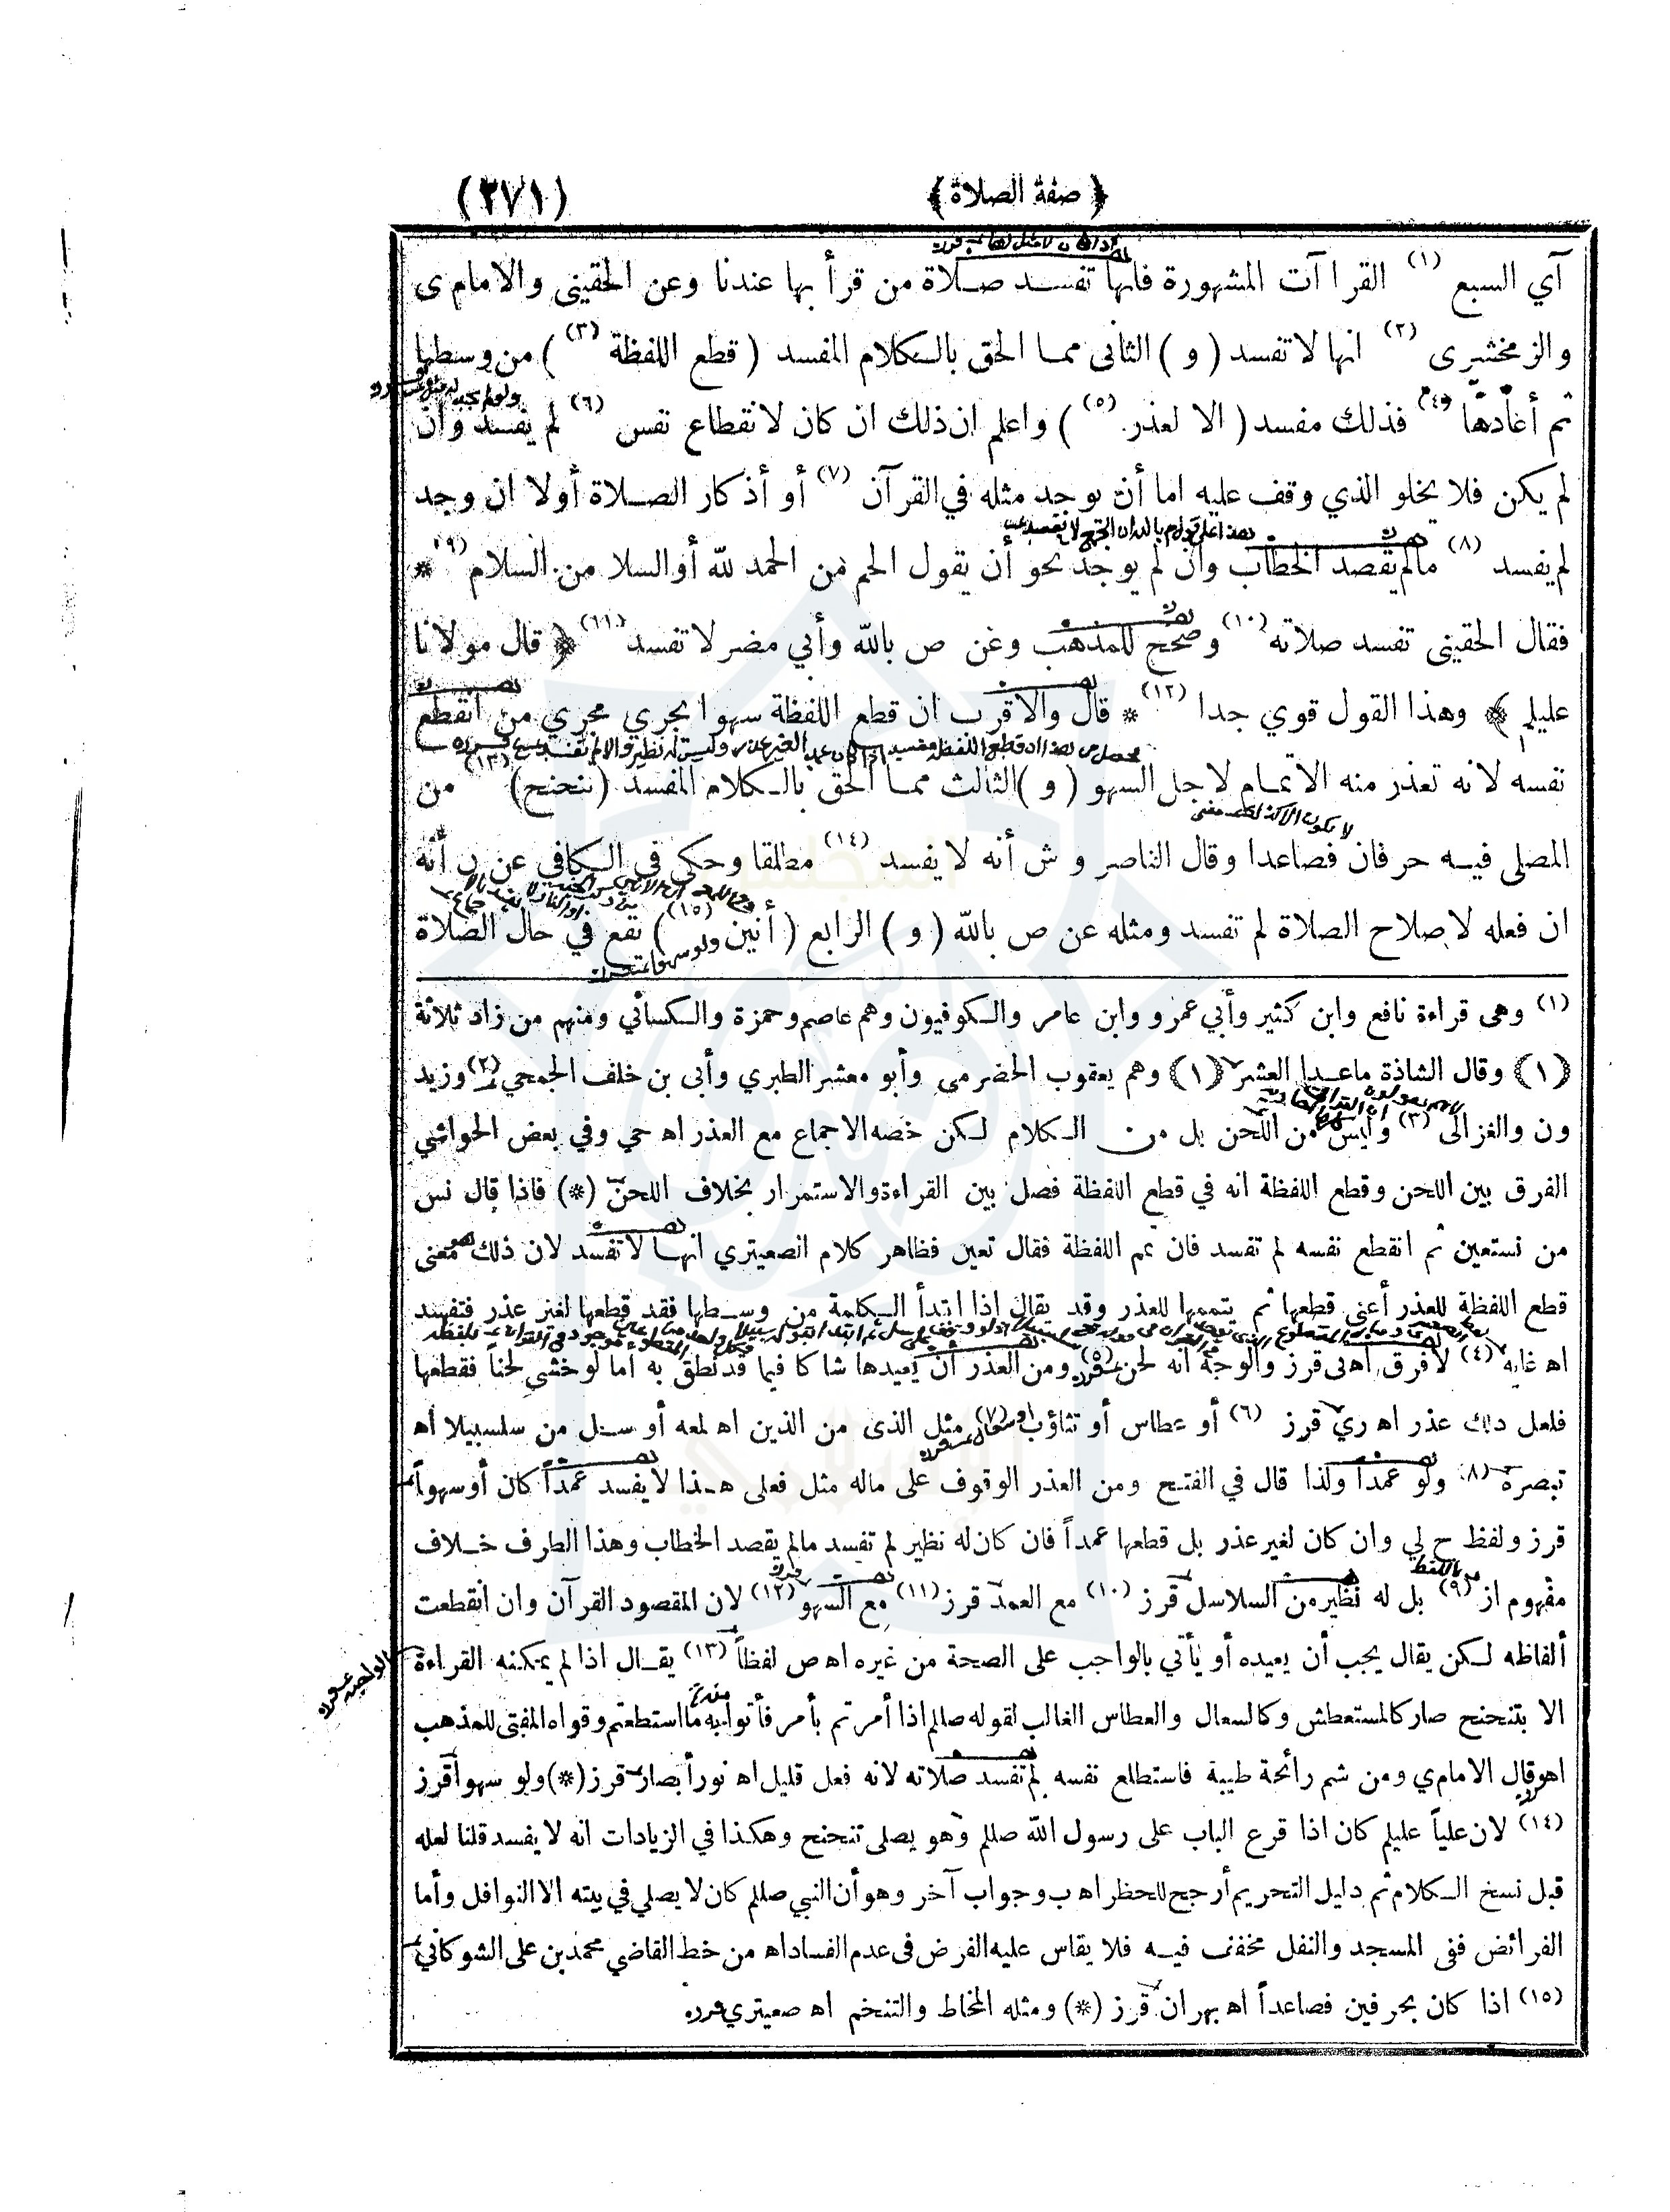 ﴿ صفة الصلاة ﴾
(٢٧١)
آي السبع (١) القراآت المشهورة فانها تفسد صلاة من قرأ بها عندنا وعن الحقيني والامام ى
والزمخشرى (٢) انها لا تفسد ( و ) الثانى مما الحق بالكلام المفسد ( قطع اللفظة (٣) ) من وسطها
ثم أعادها (٤) فذلك مفسد ( الا لعذر (٥) ) واعلم ان ذلك ان كان لانقطاع نفس (٦) لم يفسد وان
لم يكن فلا يخلو الذي وقف عليه اما أن يوجد مثله في القرآن (٧) أو أذكار الصلاة أولا ان وجد
لم يفسد (٨) مالم يقصد الخطاب وان لم يوجد نحو أن يقول الحم من الحمد لله أو السلا من السلام (٩) *
فقال الحقينى تفسد صلاته (١٠) وصحح للمذهب وعن ص بالله وأبي مضر لا تفسد (١١) ﴿ قال مولانا
عليلم ﴾ وهذا القول قوي جدا (١٢) * قال والاقرب ان قطع اللفظة سهوا يجري مجري من انقطع
نفسه لانه تعذر منه الاتمام لاجل السهو ( و ) الثالث مما الحق بالكلام المفسد (تنحنح) (١٣) من
المصلى فيه حرفان فصاعدا وقال الناصر و ش أنه لا يفسد (١٤) مطلقا وحكى في الكافي عن ن أنه
ان فعله لاصلاح الصلاة لم تفسد ومثله عن ص بالله ( و ) الرابع ( أنين (١٥) ) تقع في حال الصلاة
(١) وهى قراءة نافع وابن كثير وأبي عمرو وابن عامر والكوفيون وهم عاصم وحمزة والكسائي ومنهم من زاد ثلاثة
﴿١﴾ وقال الشاذة ماعدا العشر ﴿١﴾ وهم يعقوب الحضرمى وأبو معشر الطبري وأبى بن خلف الجمحي (٢) وزيد
ون والغزالى (٣) وليس من اللحن بل من الكلام لكن خصه الاجماع مع العذر اه حي وفي بعض الحواشي
الفرق بين اللحن وقطع اللفظة انه في قطع اللفظة فصل بين القراءة والاستمرار بخلاف اللحن (*) فاذا قال نس
من نستعين ثم انقطع نفسه لم تفسد فان تم اللفظة فقال تعين فظاهر كلام الصعيتري انها لا تفسد لان ذلك معنى
قطع اللفظة للعذر أعني قطعها ثم يتممها للعذر وقد يقال اذا ابتدأ الكلمة من وسطها فقد قطعها لغير عذر فتفسد
اه غاية (٤) لا فرق اهنى قرز والوجه انه لحن (٥) ومن العذر أن يعيدها شاكا فيما قد نطق به أما لو خشي لحناً فقطعها
فلعل ذلك عذر اه ري قرز (٦) أو عطاس أو تثاؤب (٧) مثل الذى من الذين اه لمعه أو سل من سلسبيلا اه
تبصرة (٨) ولو عمداً ولذا قال في الفتح ومن العذر الوقوف على ماله مثل فعلى هذا لا يفسد عمداً كان أو سهواً
قرز ولفظ ح لي وان كان لغير عذر بل قطعها عمداً فان كان له نظير لم تفسد مالم يقصد الخطاب وهذا الطرف خلاف
مفهوم از (٩) بل له نظير من السلاسل قرز (١٠) مع العمد قرز (١١) مع السهو (١٢) لان المقصود القرآن وان انقطعت
ألفاظه لكن يقال يجب أن يعيده أو يأتي بالواجب على الصحة من غيره اه ص لفظاً (١٣) يقال اذا لم يمكنه القراءة
الا بتنحنح صار كالمستعطش وكالسعال والعطاس الغالب لقوله صللم اذا أمرتم بأمر فأتوا به ما استطعتم وقواه المفتى للمذهب
اه وقال الامام ي ومن شم رائحة طيبة فاستطلع نفسه لم تفسد صلاته لانه فعل قليل اه نور أبصار قرز (*) ولو سهوا قرز
(١٤) لان علياً عليلم كان اذا قرع الباب على رسول الله صللم وهو يصلى تنحنح وهكذا في الزيادات انه لا يفسد قلنا لعله
قبل نسخ الكلام ثم دليل التحريم أرجح للحظر اه ب وجواب آخر وهو أن النبي صللم كان لا يصلي في بيته الا النوافل وأما
الفرائض ففى المسجد والنفل مخفف فيه فلا يقاس عليه الفرض فى عدم الفساد اه من خط القاضي محمد بن على الشوكاني
(١٥) اذا كان بحرفين فصاعداً اه بهران قرز (*) ومثله المخاط والتنخم اه صعيتري قرز